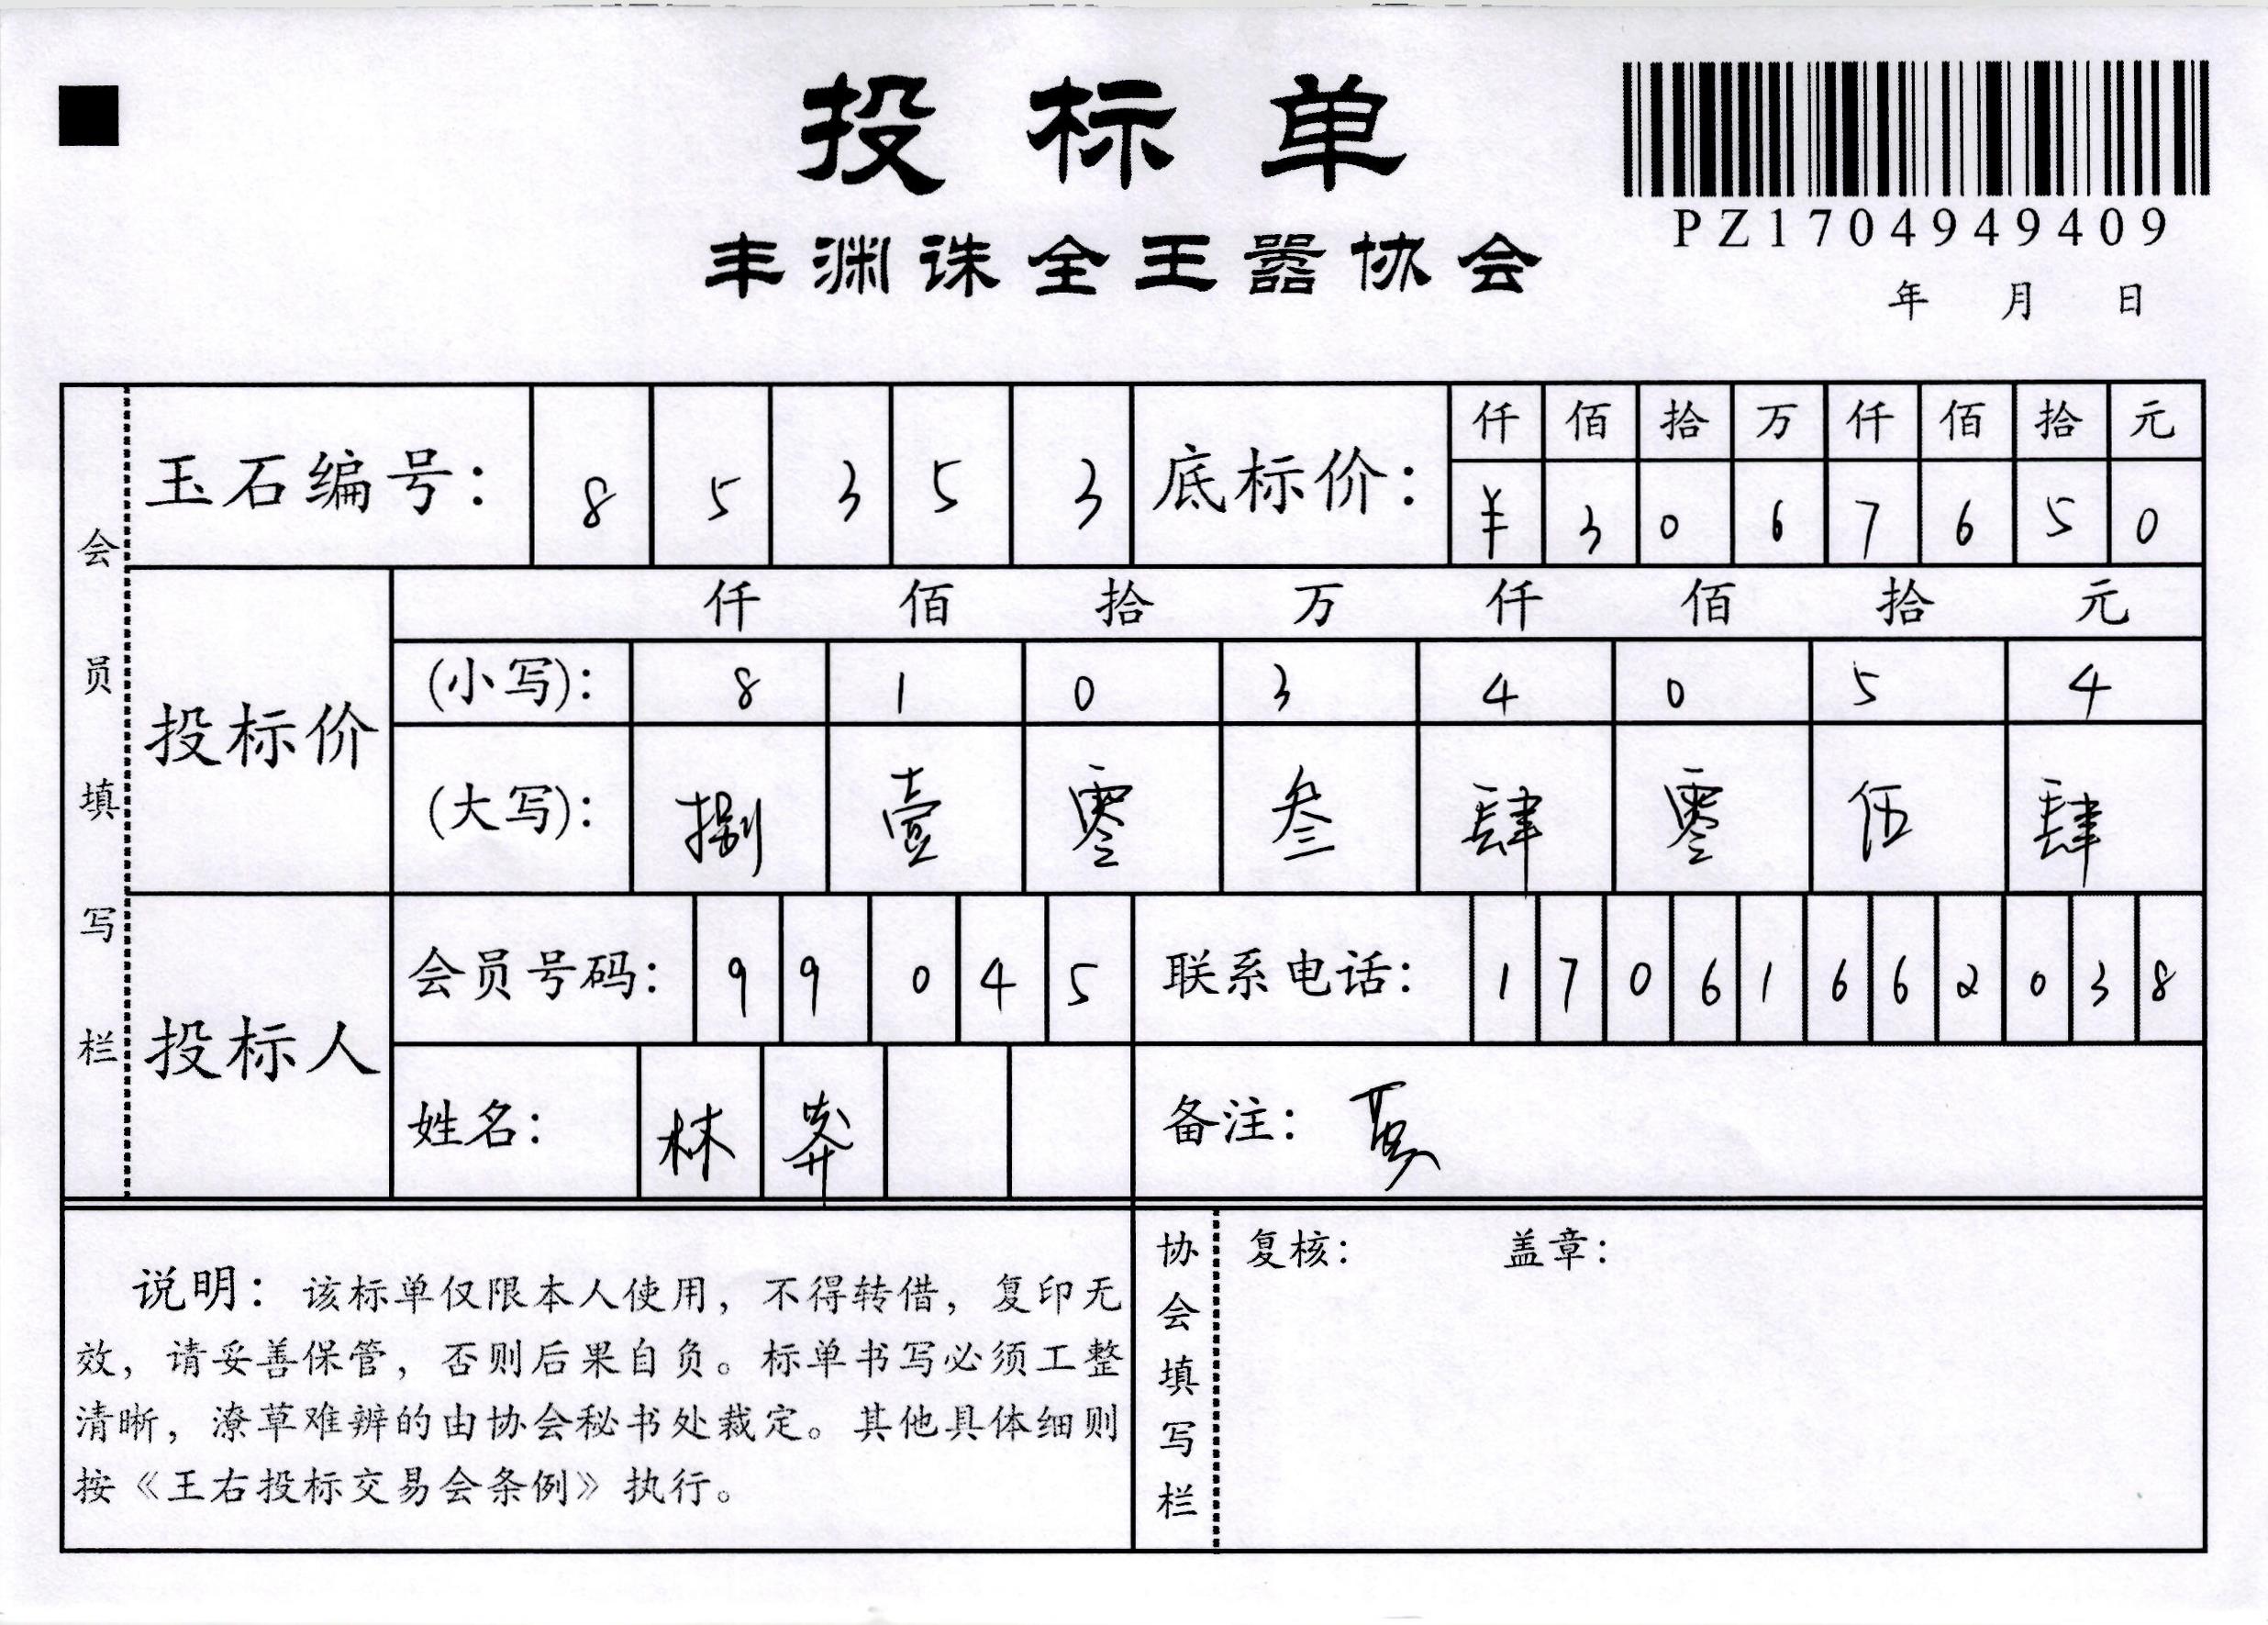 投标单
丰渊诛全王嚣协会
PZ1704949409
年 月 日
会员填写栏
玉石编号： 8 5 3 5 3
底标价： 仟 佰 拾 万 仟 佰 拾 元
¥ 3 0 6 7 6 5 0
投标价
仟 佰 拾 万 仟 佰 拾 元
(小写)： 8 1 0 3 4 0 5 4
(大写)： 捌 壹 零 叁 肆 零 伍 肆
投标人
会员号码： 9 9 0 4 5
联系电话： 1 7 0 6 1 6 6 2 0 3 8
姓名： 林
备注：
说明：该标单仅限本人使用，不得转借，复印无
效，请妥善保管，否则后果自负。标单书写必须工整
清晰，潦草难辨的由协会秘书处裁定。其他具体细则
按《王右投标交易会条例》执行。
协会填写栏
复核： 盖章：